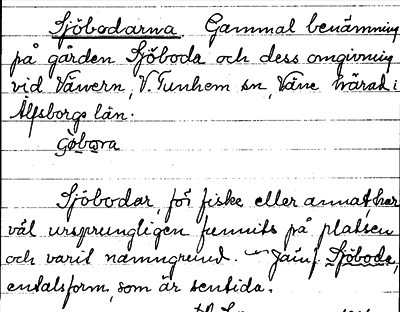 Sjöbodarna. Gammal benämning
på gården Sjöboda och dess omgivning
vid Vänern, V. Tunhem sn, Väne härad i
Älfsborgs län.
Sjöbodar, för fiske eller annat, har
väl ursprungligen funnits på platsen
och varit namngrund. Jämf. Sjöboda,
entalsform, som är sentida.